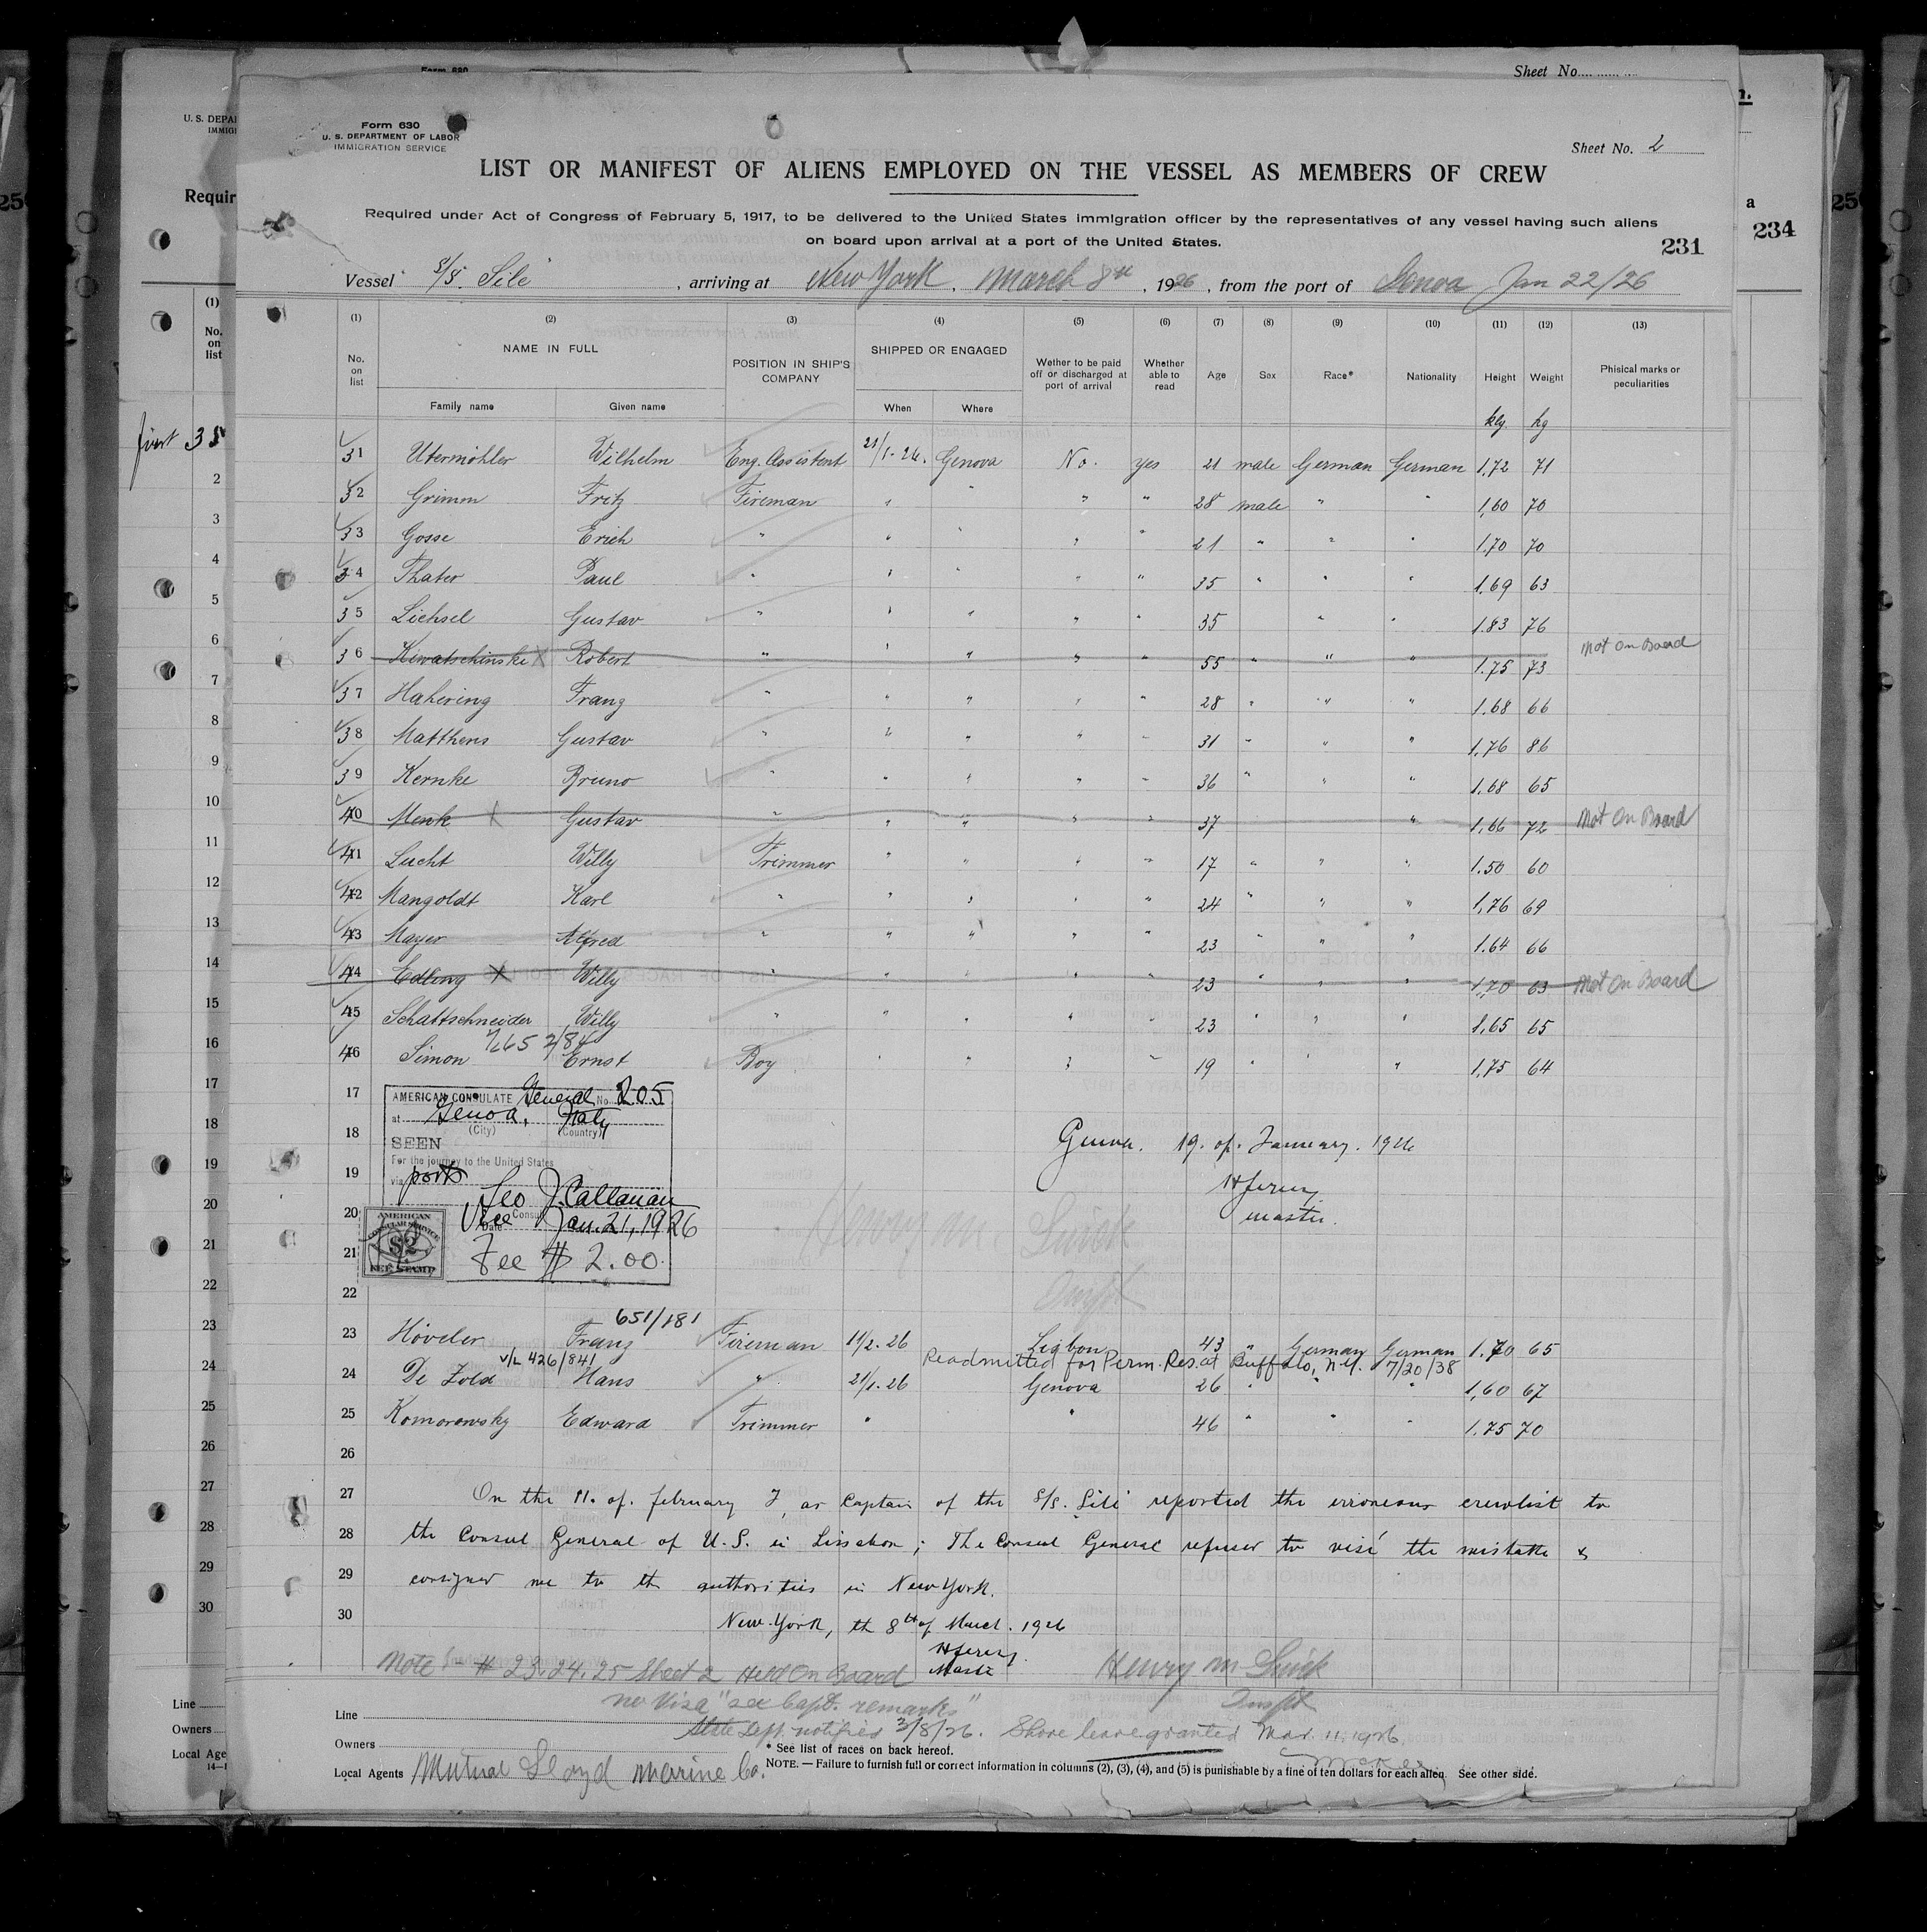 Form 630
Sheet No.
U. S. DEPA
IMMIGI
Requir
Form 630
U. S. DEPARTMENT OF LABOR
IMMIGRATION SERVICE
Sheet No. 2
LIST OR MANIFEST OF ALIENS EMPLOYED ON THE VESSEL AS MEMBERS OF CREW
Required under Act of Congress of February 5, 1917, to be delivered to the United States immigration officer by the representatives of any vessel having such aliens
on board upon arrival at a port of the United States.
231
234
Vessel S/S. , arriving at New York, March 8th, 1926, from the port of Genoa Jan 22/26
(1) (2) (3) (4) (5) (6) (7) (8) (9) (10) (11) (12) (13)
No. on list NAME IN FULL POSITION IN SHIP'S COMPANY SHIPPED OR ENGAGED Wether to be paid off or discharged at port of arrival Whether able to read Age Sex Race* Nationality Height Weight Phisical marks or peculiarities
Family name Given name When Where
first 35
31 Utermöhler Wilhelm Eng. Assistent 21/1-26. Genova No. yes 21 male German German 1,72 71
32 Grimm Fritz Fireman " " " " 28 male " " 1,60 70
33 Gosse Erich " " " " " 21 " " " 1.70 70
34 Thater Paul " " " " " 35 " " " 1.69 63
35 Liehsel Gustav " " " " " 35 " " 1.83 76
36 Kewatschinske X Robert " " " " " 55 " " " 1.75 73 Not On Board
37 Hahering Franz " " " " " 28 " " " 1.68 66
38 Matthens Gustav " " " " " 31 " " " 1,76 86
39 Kernke Bruno " " " " " 36 " " " 1.68 65
40 Menk X Gustav " " " " " 37 " 1,66 72 Not On Board
41 Lucht Willy Trimmer " " " " 17 " " " 1.50 60
42 Mangoldt Karl " " " " " 24 " " " 1,76 69
43 Mayer Alfred " " " " " 23 " " " 1.64 66
44 Edling X Willy " " " " " 23 " " " 1,70 63 Not On Board
45 Schattschneider Willy " " " " " 23 " " " 1,65 65
46 Simon Ernst Boy " " " " 19 " " " 1,75 64
17
AMERICAN CONSULATE General No. 205
at Genoa, Italy
(City) (Country)
18
SEEN
For the journey to the United States
19
via ports
Leo J. Callanan
Vice Consul
20
Date Jan. 21, 1926
AMERICAN CONSULAR SERVICE $2 FEE STAMP
21
Fee $ 2.00
22
19. of. January. 1926
master.
651/181
23 Höveler Franz Fireman 11/2. 26 Lisbon 43 " German German 1.70 65
V/L 426/841
Readmitted for Perm. Res. at Buffalo, N.Y. 7/20/38
24 De Zold Hans " 21/1. 26 Genova 26 " " " 1,60 67
25 Komorowsky Edward Trimmer " " 46 " " " 1.75 70
26
27 On the 11. of. february I, as Captain of the S/s. reported the erroneous crewlist to
28 the Consul General of U. S. in Lissabon; The Consul General refused to visé the mistake &
29 consigned me to the authorities in New York.
30 New-York, th 8th of March. 1926
Note - # 23.24.25 Sheet 2 Held On Board Master Henry M
no Visa "see Capt. remarks" Inspt
Line
State Dept. notified 3/8/26. Shore leave granted Mar. 11. 1926
Owners
* See list of races on back hereof.
Local Agents Mutual Lloyd Marine Co.
NOTE. — Failure to furnish full or correct information in columns (2), (3), (4), and (5) is punishable by a fine of ten dollars for each alien. See other side.
Line
Owners
Local Age